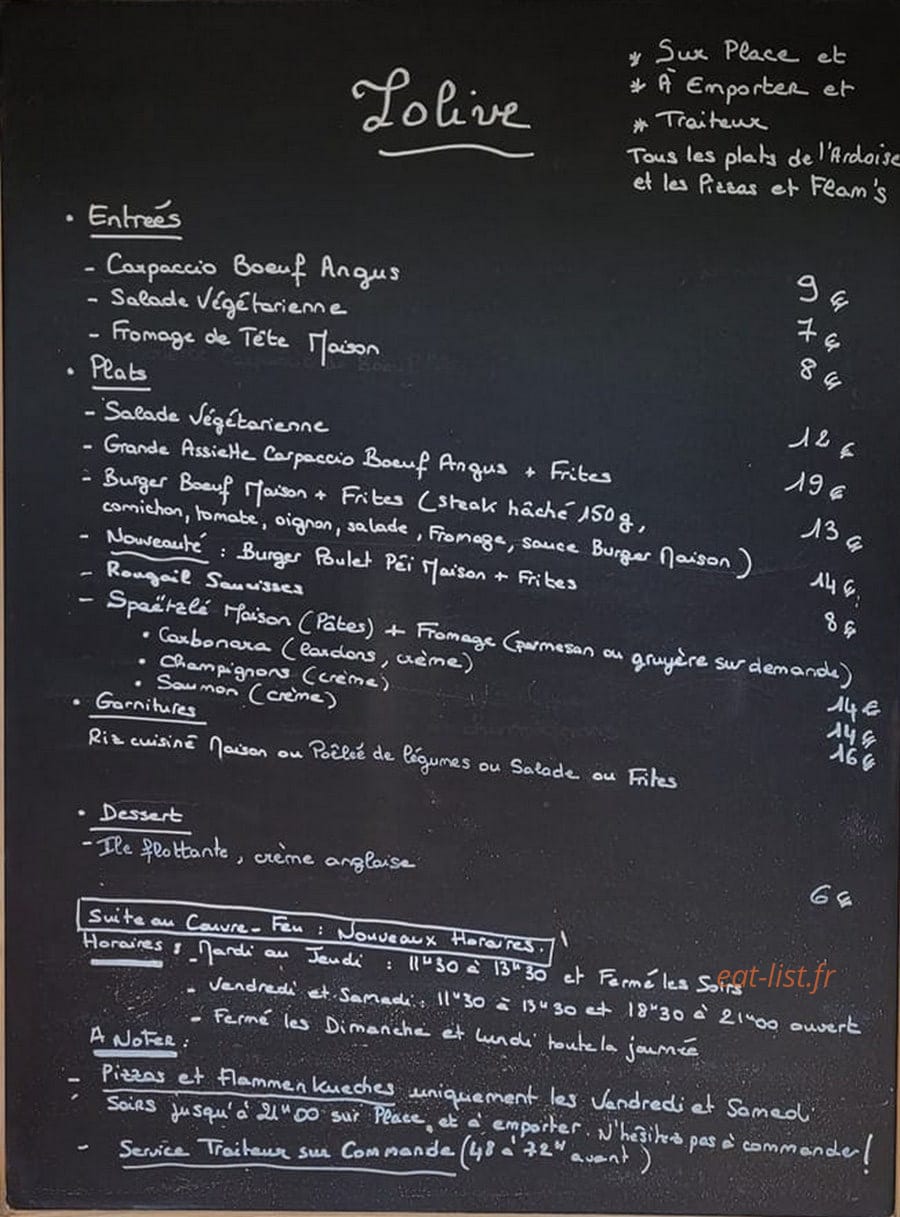 Lolive
* Sur Place et
* À Emporter et
* Traiteur
Tous les plats de l'Ardoise
et les Pizzas et Flam's
• Entreés
- Carpaccio Boeuf Angus 9 €
- Salade Végétarienne 7 €
- Fromage de Tête Maison 8 €
• Plats
- Salade Végétarienne 12 €
- Grande Assiette Carpaccio Boeuf Angus + Frites 19 €
- Burger Boeuf Maison + Frites (steak hâché 150 g,
cornichon, tomate, oignon, salade, Fromage, sauce Burger Maison) 13 €
- Nouveauté : Burger Poulet Péi Maison + Frites 14 €
- Rougail Saucisses 8 €
- Spaëtzlé Maison (Pâtes) + Fromage (parmesan ou gruyère sur demande)
• Carbonara (lardons, crème) 14 €
• Champignons (crème) 14 €
• Saumon (crème) 16 €
• Garnitures
Riz cuisiné Maison ou Poêlée de légumes ou Salade ou Frites
• Dessert
- Ile flottante, crème anglaise 6 €
Suite au Couvre-Feu : Nouveaux Horaires.
Horaires : - Mardi au Jeudi : 11H30 à 13H30 et Fermé les Soirs
eat-list.fr
- Vendredi et Samedi : 11H30 à 13H30 et 18H30 à 21H00 ouvert
- Fermé les Dimanche et Lundi toute la journée
A Noter :
- Pizzas et Flammenkueches uniquement les Vendredi et Samedi
Soirs jusqu'à 21H00 sur Place, et à emporter. N'hésitez pas à commander !
- Service Traiteur sur Commande (48 à 72H avant)